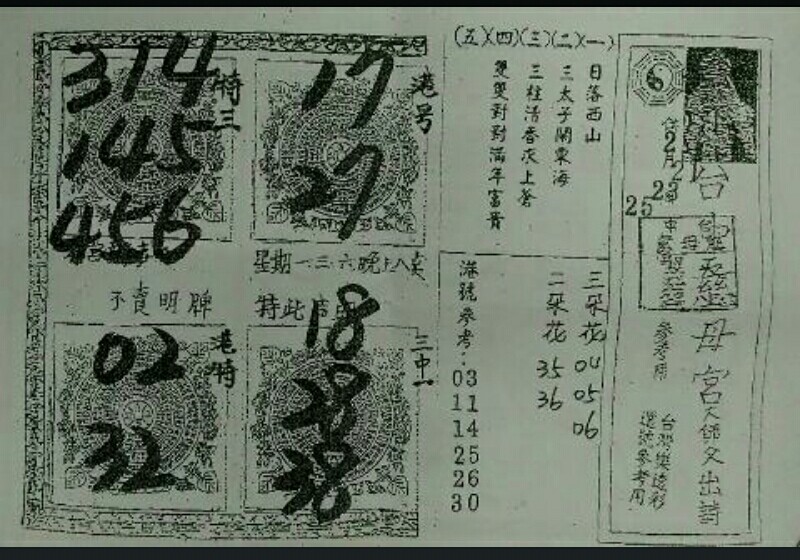 特三
314
145
456
港号
17
27
星期一三六晚上八賣
不賣明牌
特此
港特
02
32
三中一
18
28
38
(五)(四)(三)(二)(一)
日落西山
三太子鬧東海
三柱清香灰上蒼
雙雙對對滿年富貴
三朵花 04 05 06
二朵花 35 36
港號參考:
03
11
14
25
26
30
2月
23
25
台
母宮天師父出詩
參考用
台灣樂透彩
選號參考用